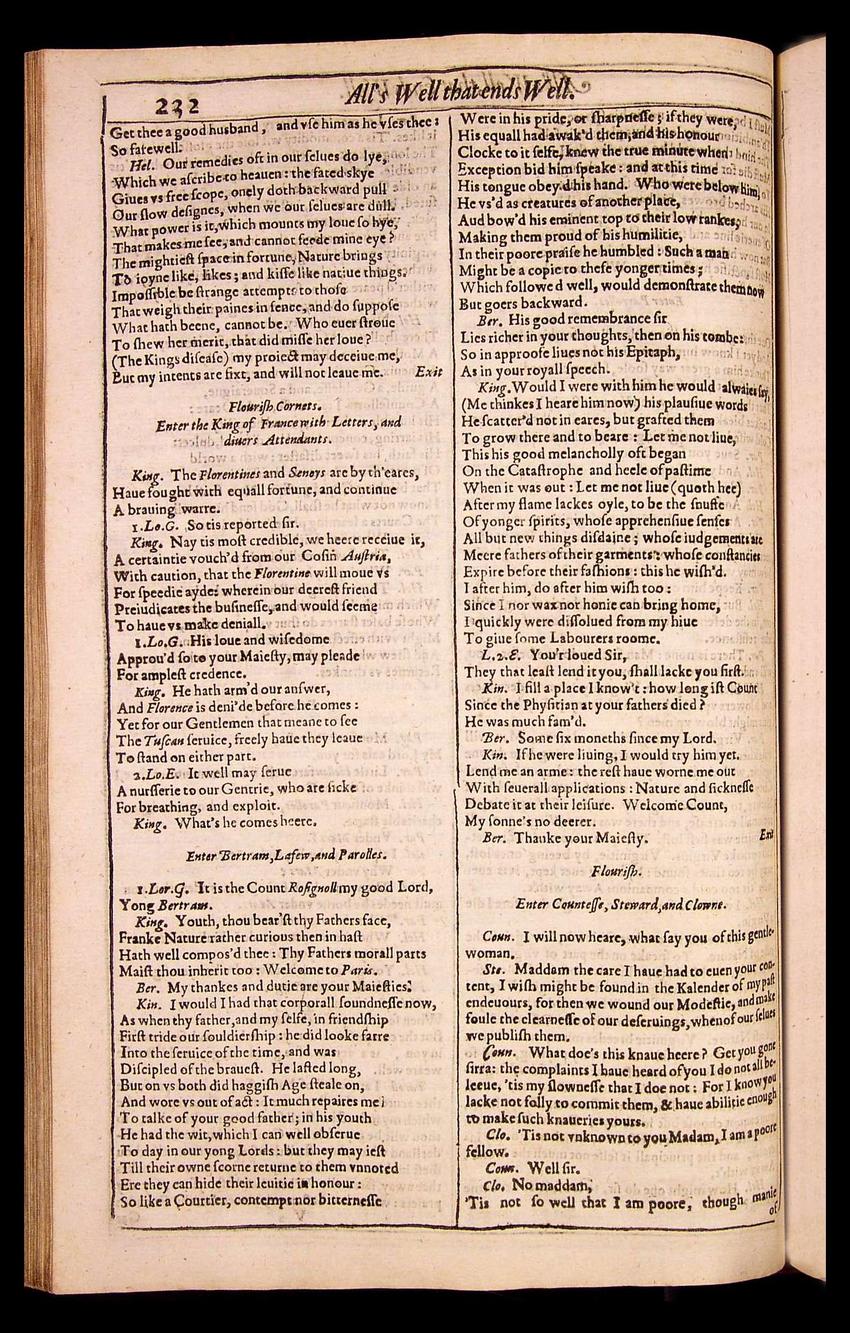 232
All's Well that ends Well.
Get thee a good husband, and vse him as he vses thee:
So farewell.
Hel. Our remedies oft in our selues do lye,
Which we ascribe to heauen: the fated skye
Giues vs free scope, onely doth backward pull
Our slow designes, when we our selues are dull.
What power is it, which mounts my loue so hye,
That makes me see, and cannot feede mine eye?
The mightiest space in fortune, Nature brings
To ioyne like, likes; and kisse like natiue things.
Impossible be strange attempts to those
That weigh their paines in sence, and do suppose
What hath beene, cannot be. Who euer stroue
To shew her merit, that did misse her loue?
(The Kings disease) my proiect may deceiue me,
But my intents are fixt, and will not leaue me. Exit
Flourish Cornets.
Enter the King of France with Letters, and
diuers Attendants.
King. The Florentines and Senoys are by th'eares,
Haue fought with equall fortune, and continue
A brauing warre.
1.Lo.G. So tis reported sir.
King. Nay tis most credible, we heere receiue it,
A certaintie vouch'd from our Cosin Austria,
With caution, that the Florentine will moue vs
For speedie ayde: wherein our deerest friend
Preiudicates the businesse, and would seeme
To haue vs make deniall.
1.Lo.G. His loue and wisedome
Approu'd so to your Maiesty, may pleade
For amplest credence.
King. He hath arm'd our answer,
And Florence is deni'de before he comes:
Yet for our Gentlemen that meane to see
The Tuscan seruice, freely haue they leaue
To stand on either part.
2.Lo.E. It well may serue
A nursserie to our Gentrie, who are sicke
For breathing, and exploit.
King. What's he comes heere.
Enter Bertram, Lafew, and Parolles.
1.Lor.G. It is the Count Rosignoll my good Lord,
Yong Bertram.
King. Youth, thou bear'st thy Fathers face,
Franke Nature rather curious then in hast
Hath well compos'd thee: Thy Fathers morall parts
Maist thou inherit too: Welcome to Paris.
Ber. My thankes and dutie are your Maiesties.
Kin. I would I had that corporall soundnesse now,
As when thy father, and my selfe, in friendship
First tride our souldiership: he did looke farre
Into the seruice of the time, and was
Discipled of the brauest. He lasted long,
But on vs both did haggish Age steale on,
And wore vs out of act: It much repaires me
To talke of your good father; in his youth
He had the wit, which I can well obserue
To day in our yong Lords: but they may iest
Till their owne scorne returne to them vnnoted
Ere they can hide their leuitie in honour:
So like a Courtier, contempt nor bitternesse
Were in his pride, or sharpnesse; if they were,
His equall had awak'd them, and his honour
Clocke to it selfe, knew the true minute when
Exception bid him speake: and at this time
His tongue obey'd his hand. Who were below him,
He vs'd as creatures of another place,
Aud bow'd his eminent top to their low rankes,
Making them proud of his humilitie,
In their poore praise he humbled: Such a man
Might be a copie to these yonger times;
Which followed well, would demonstrate them now
But goers backward.
Ber. His good remembrance sir
Lies richer in your thoughts, then on his tombe:
So in approofe liues not his Epitaph,
As in your royall speech.
King. Would I were with him he would alwaies say,
(Me thinkes I heare him now) his plausiue words
He scatter'd not in eares, but grafted them
To grow there and to beare: Let me not liue,
This his good melancholly oft began
On the Catastrophe and heele of pastime
When it was out: Let me not liue (quoth hee)
After my flame lackes oyle, to be the snuffe
Of yonger spirits, whose apprehensiue senses
All but new things disdaine; whose iudgements are
Meere fathers of their garments: whose constancies
Expire before their fashions: this he wish'd.
I after him, do after him wish too:
Since I nor wax nor honie can bring home,
I quickly were dissolued from my hiue
To giue some Labourers roome.
L.2.E. You'r loued Sir,
They that least lend it you, shall lacke you first.
Kin. I fill a place I know't: how long ist Count
Since the Physitian at your fathers died?
He was much fam'd.
Ber. Some six moneths since my Lord.
Kin. If he were liuing, I would try him yet.
Lend me an arme: the rest haue worne me out
With seuerall applications: Nature and sicknesse
Debate it at their leisure. Welcome Count,
My sonne's no deerer.
Ber. Thanke your Maiesty. Exit
Flourish.
Enter Countesse, Steward, and Clowne.
Coun. I will now heare, what say you of this gentle-
woman.
Ste. Maddam the care I haue had to euen your con-
tent, I wish might be found in the Kalender of my past
endeuours, for then we wound our Modestie, and make
foule the clearnesse of our deseruings, when of our selues
we publish them.
Coun. What doe's this knaue heere? Get you gone
sirra: the complaints I haue heard of you I do not all be-
leeue, 'tis my slownesse that I doe not: For I know you
lacke not folly to commit them, & haue abilitie enough
to make such knaueries yours.
Clo. 'Tis not vnknown to you Madam, I am a poore
fellow.
Coun. Well sir.
Clo. No maddam,
'Tis not so well that I am poore, though manie
of